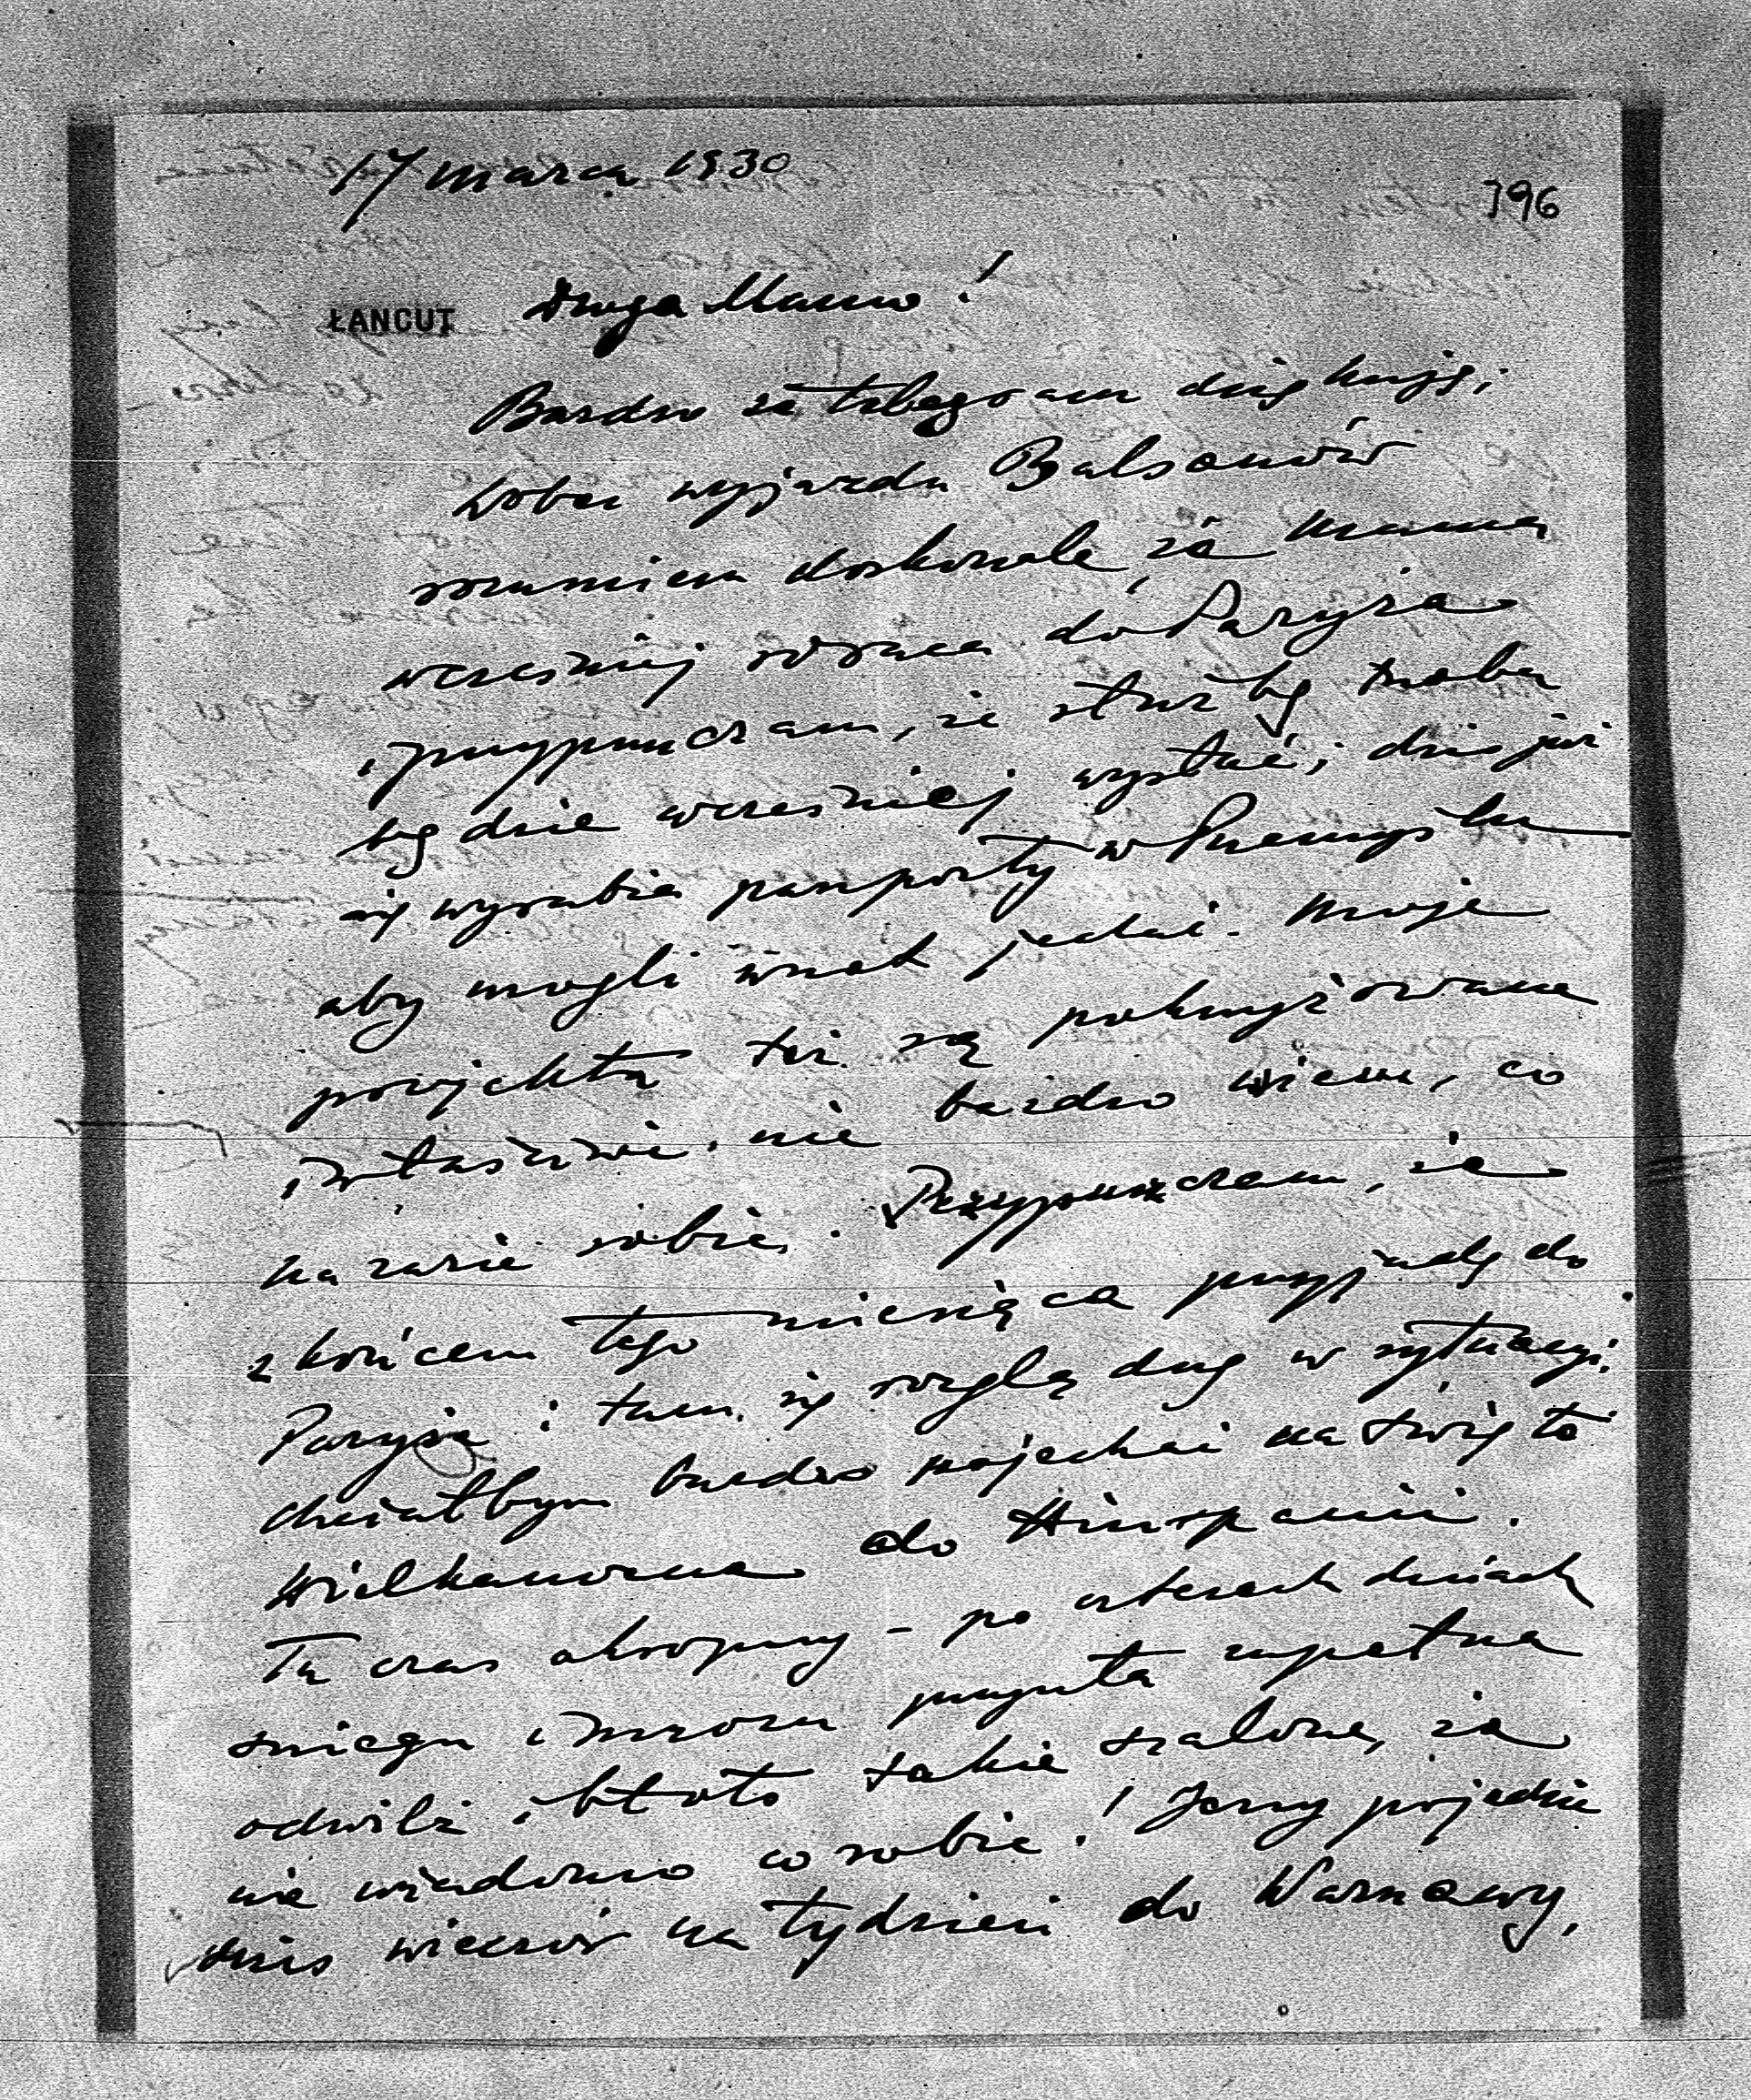 17 marca 1930
796
ŁANCUT
Droga Mamo!
Bardzo za telegram dziękuję;
wobec wyjazdu Balsanów
rozumiem doskonale, że Mama
wcześniej wraca do Paryża
i przypuszczam, że służbę trzeba
będzie wcześniej wysłać; dziś już
się wyrabia paszporty w Przemyślu
aby mogli wnet jechać. Moje
projekta też są pokrzyżowane
i właściwie nie bardzo wiem, co
na razie robić. Przypuszczam, że
z końcem tego miesiąca przyjadę do
Paryża i tam się rozglądnę w sytuacyi.
chciałbym bardzo pojechać na Święta
Wielkanocne do Hiszpanii.
Tu czas okropny – po czterech dniach
śniegu i mrozu przyszła zupełna
odwilż i błoto takie szalone, że
nie wiadomo co robić! Jerzy pojedzie
dziś wieczór na tydzień do Warszawy,